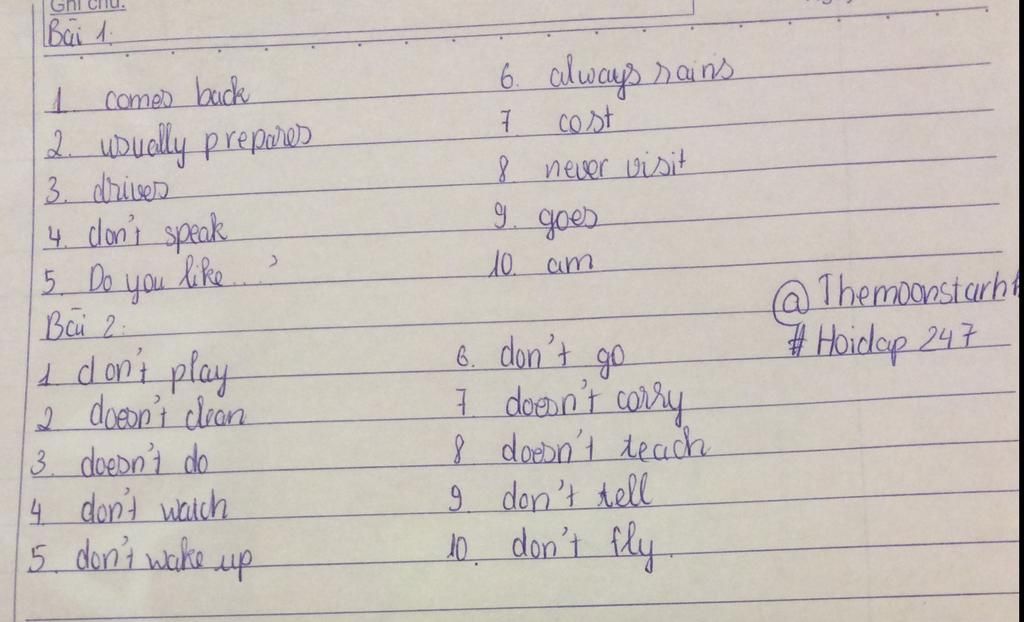 Ghi chú:
Bài 1:
1. comes back
2. usually prepares
3. drives
4. don't speak
5. Do you like...?
6. always rains
7 cost
8 never visit
9. goes
10. am
@Themoonstarh
# Hoidap 247
Bài 2:
1 don't play
2 doesn't clean
3. doesn't do
4 don't watch
5. don't wake up
6. don't go
7 doesn't carry
8 doesn't teach
9 don't tell
10. don't fly.